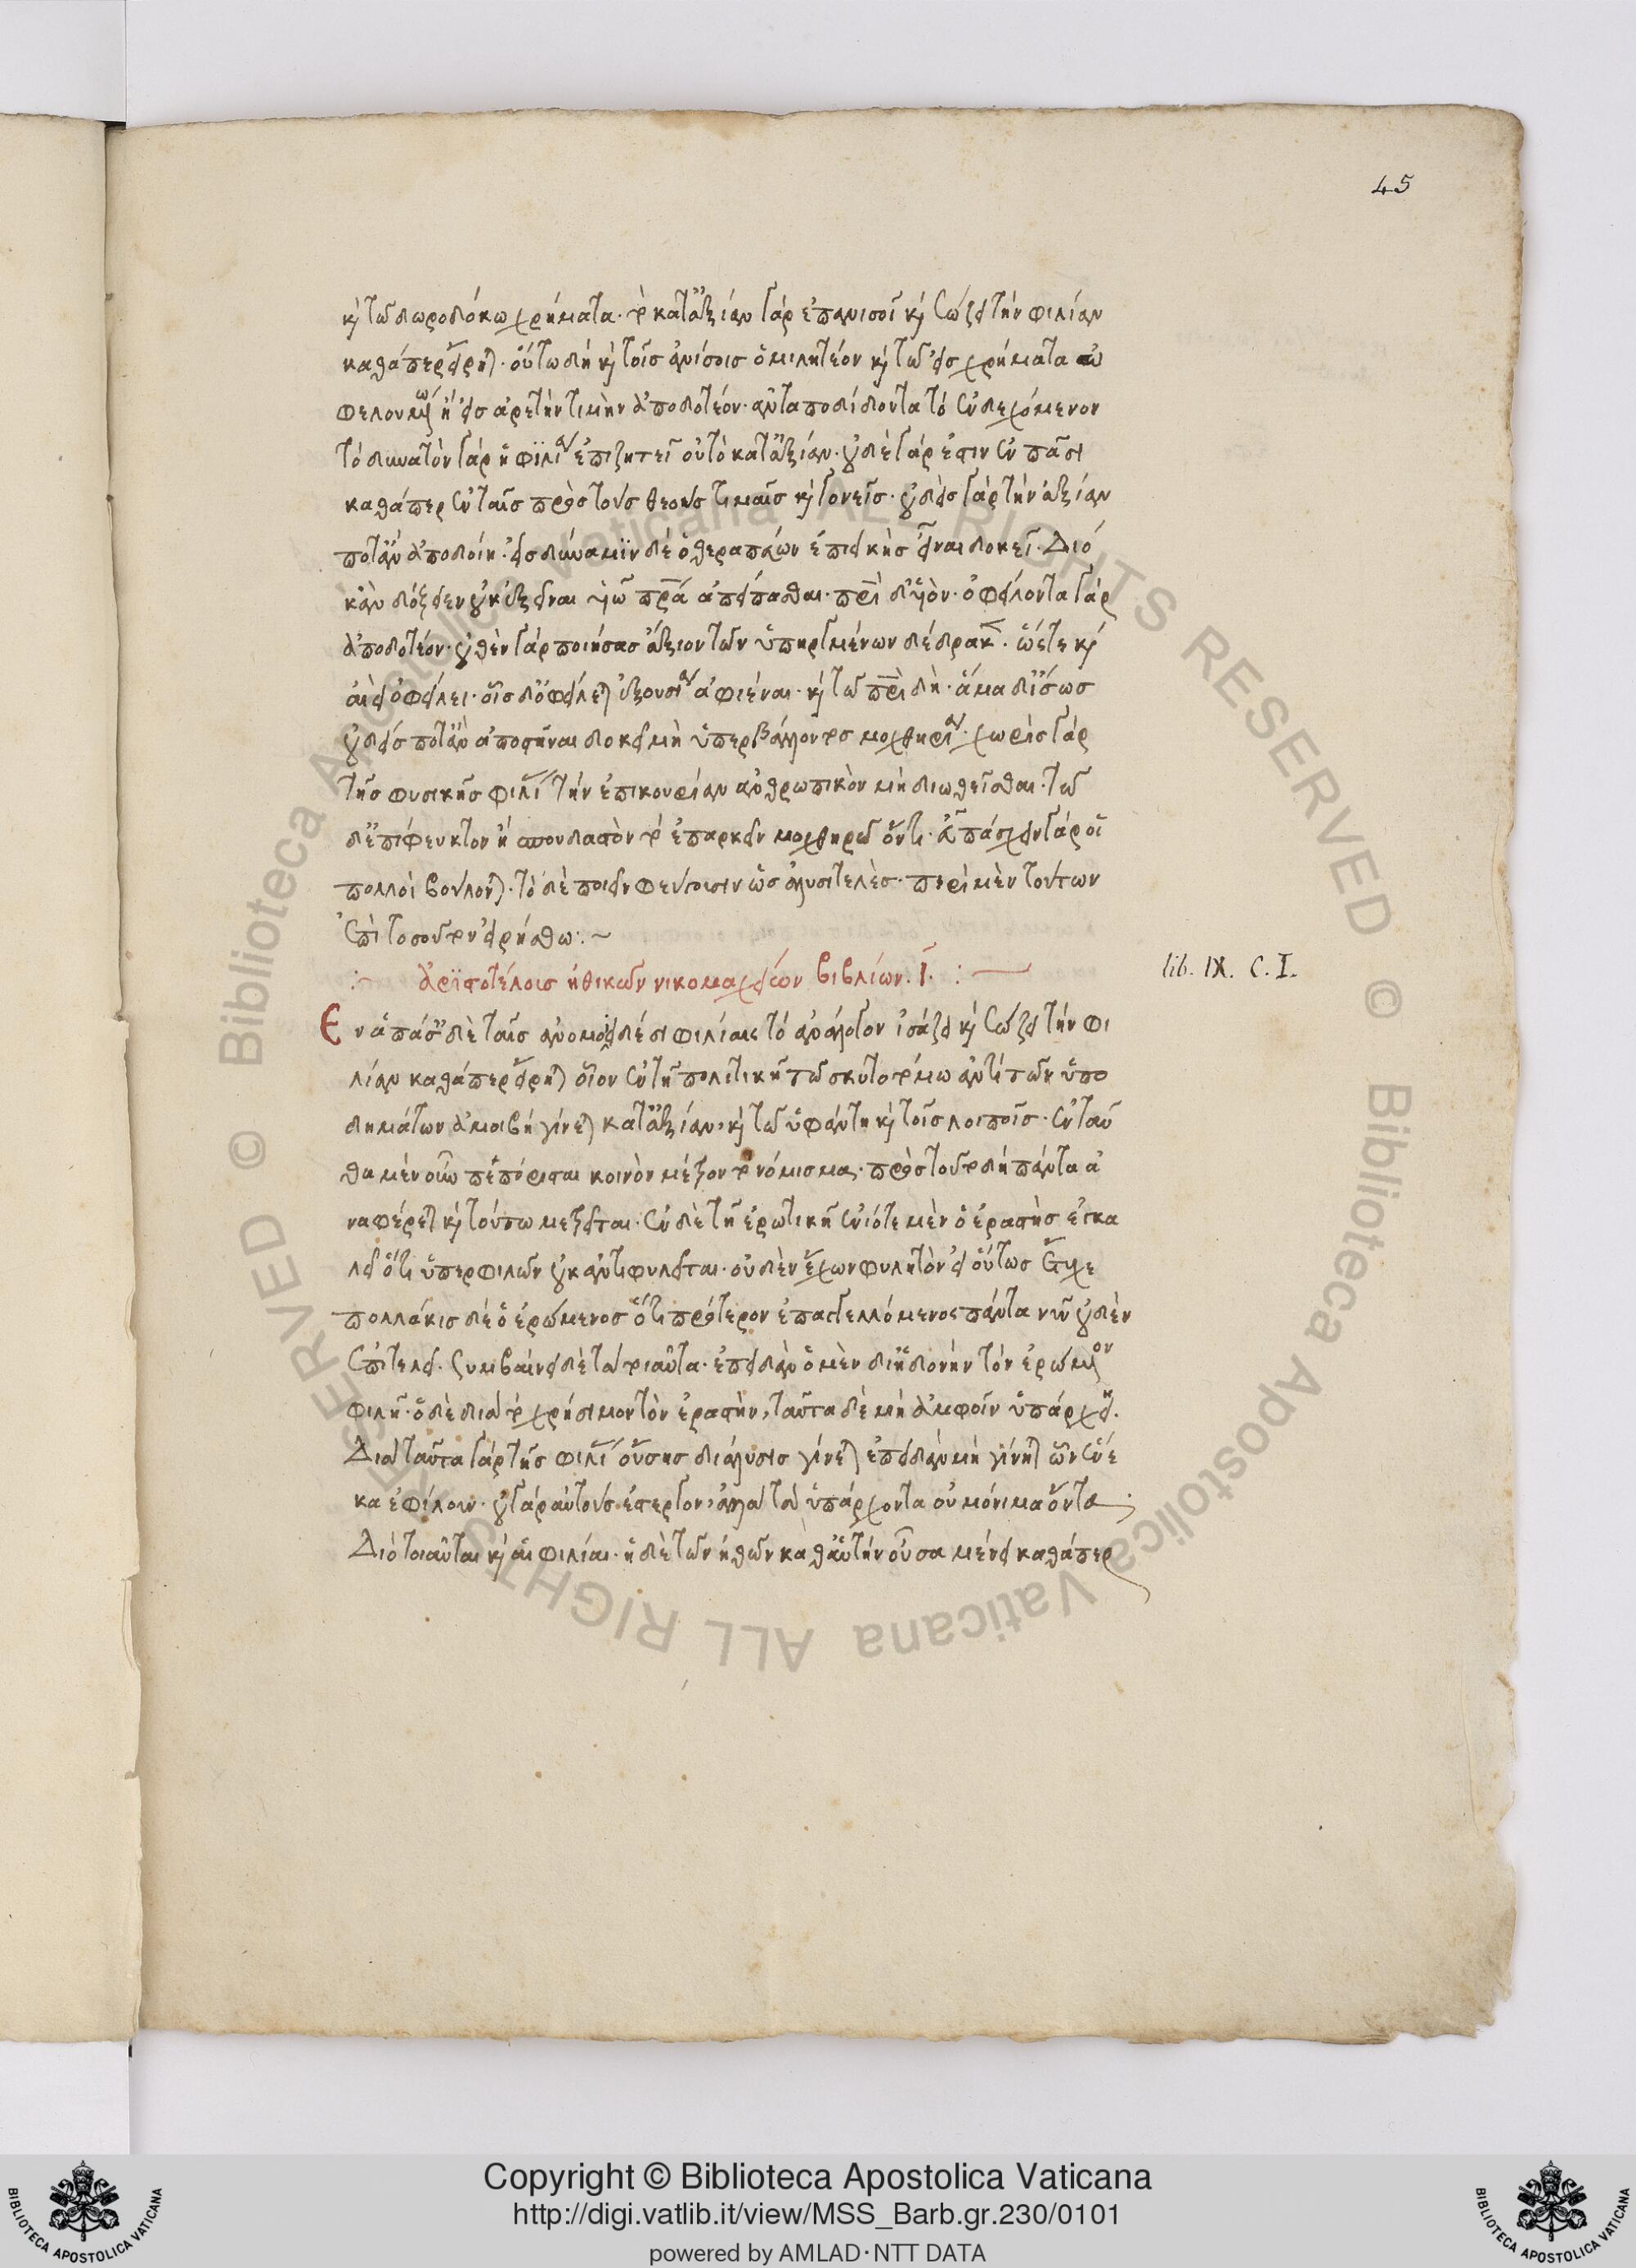 45
καὶ τῶ δωροδόκω χρήματα· τὸ κατ' ἀξίαν γὰρ ἐπανισοῖ καὶ σώζει τὴν φιλίαν
καθάπερ εἴρηται· οὕτω δὴ καὶ τοῖς ἀνίσοις ὁμιλητέον καὶ τῶ εἰς χρήματα ὠ
φελουμένω ἢ εἰς ἀρετὴν τιμὴν ἀποδοτέον· ἀνταποδίδοντα τὸ ἐνδεχόμενον
τὸ δυνατὸν γὰρ ἡ φιλία ἐπιζητεῖ οὐ τὸ κατ' ἀξίαν· οὐδὲ γάρ ἐστιν ἐν πᾶσι
καθάπερ ἐν ταῖς πρὸς τοὺς θεοὺς τιμαῖς καὶ γονεῖς· οὐδεὶς γὰρ τὴν ἀξίαν
ποτ' ἂν ἀποδοίη· εἰς δύναμιν δὲ ὁ θεραπεύων ἐπιεικὴς εἶναι δοκεῖ· Διὸ
κἂν δόξειεν οὐκ ἐξεῖναι υἱῶ πατέρα ἀπείπασθαι· πατρὶ δ' υἱόν· ὀφείλοντα γὰρ
ἀποδοτέον· οὐθὲν γὰρ ποιήσας ἄξιον τῶν ὑπηργμένων δέδρακεν· ὥστε καὶ
ἀεὶ ὀφείλει· οἷς δ' ὀφείλεται ἐξουσία ἀφιέναι· καὶ τῶ πατρὶ δὴ· ἅμα δ' ἴσως
οὐδείς ποτ' ἂν ἀποστῆναι δοκεῖ μὴ ὑπερβάλλοντος μοχθηρία· χωρὶς γὰρ
τῆς φυσικῆς φιλίας τὴν ἐπικουρίαν ἀνθρωπικὸν μὴ διωθεῖσθαι· τῶ
δὲ ἐπίφευκτον ἢ οὐ σπουδαστὸν τὸ ἐπαρκεῖν μοχθηρῶ ὄντι· εὖ πάσχειν γὰρ οἱ
πολλοὶ βούλονται· τὸ δὲ ποιεῖν φεύγουσιν ὡς ἀλυσιτελὲς· περὶ μὲν τούτων
ἐπὶ τοσοῦτον εἰρήσθω:~
:~ ἀριστοτέλους ἠθικῶν νικομαχείων βιβλίων. Ι. :—
lib. IX. C. I.
Ἐν ἁπάσαις δὲ ταῖς ἀνομοιοειδέσι φιλίαις τὸ ἀνάλογον ἰσάζει καὶ σώζει τὴν φι
λίαν καθάπερ εἴρηται οἷον ἐν τῆ πολιτικῆ τῶ σκυτοτόμω ἀντὶ τῶν ὑπο
δημάτων ἀμοιβὴ γίνεται κατ' ἀξίαν, καὶ τῶ ὑφάντη καὶ τοῖς λοιποῖς· ἐνταῦ
θα μὲν οὖν πεπόρισται κοινὸν μέτρον τὸ νόμισμα· πρὸς τοῦτο δὴ πάντα ἀ
ναφέρεται καὶ τούτω μετρεῖται· ἐν δὲ τῆ ἐρωτικῆ ἐνίοτε μὲν ὁ ἐραστὴς ἐγκα
λεῖ ὅτι ὑπερφιλῶν οὐκ ἀντιφιλεῖται· οὐδὲν ἔχων φιλητὸν εἰ οὕτως ἔτυχε
πολλάκις δὲ ὁ ἐρώμενος ὅτι πρότερον ἐπαγγελλόμενος πάντα νῦν οὐδὲν
ἐπιτελεῖ. Συμβαίνει δὲ τὰ τοιαῦτα· ἐπειδὰν ὁ μὲν δι' ἡδονὴν τὸν ἐρώμενον
φιλῆ· ὁ δὲ διὰ τὸ χρήσιμον τὸν ἐραστὴν, ταῦτα δὲ μὴ ἀμφοῖν ὑπάρχη.
Διὰ ταῦτα γὰρ τῆς φιλίας οὔσης διάλυσις γίνεται ἐπειδὰν μὴ γίνηται ὧν ἕνε
κα ἐφίλουν· οὐ γὰρ αὐτοὺς ἔστεργον, ἀλλὰ τὰ ὑπάρχοντα οὐ μόνιμα ὄντα·
Διὸ τοιαῦται καὶ αἱ φιλίαι· ἡ δὲ τῶν ἠθῶν καθ' αὑτὴν οὖσα μένει καθάπερ
© Biblioteca Apostolica Vaticana ALL RIGHTS RESERVED © Biblioteca Apostolica Vaticana ALL RIGHTS RESERVED
Copyright © Biblioteca Apostolica Vaticana
http://digi.vatlib.it/view/MSS_Barb.gr.230/0101
powered by AMLAD·NTT DATA
BIBLIOTECA APOSTOLICA VATICANA
BIBLIOTECA APOSTOLICA VATICANA